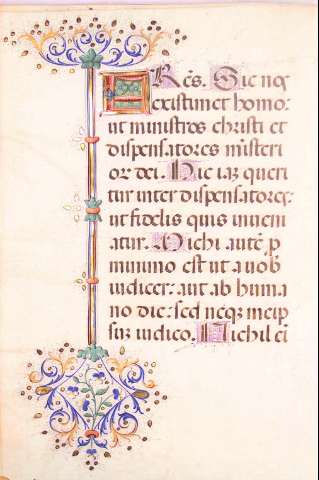 Fr̃es. Sic nos
existimet homo:
ut ministros christi et
dispensatores misteri
or dei. Hic iaʒ queri
tur inter dispensatores:
ut fidelis quis inueni
atur. Michi autē p
minimo est ut a uob
iudicer: aut ab huma
no die: sed neqʒ meip
suʒ iudico. Nichil ei